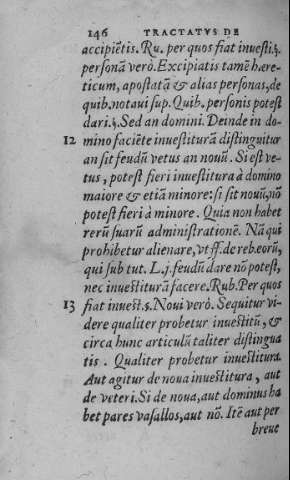 146 TRACTATVS DE
accipiētis. Ru. per quos fiat inuesti.§.
personā verò. Excipiatis tamē hære-
ticum, apostatā & alias personas, de
quib. notaui sup. Quib. personis potest
dari.§. Sed an domini. Deinde in do-
12 mino faciēte inuestiturā distinguitur
an sit feudū vetus an nouū. Si est ve-
tus, potest fieri inuestitura à domino
maiore & etiā minore: si sit nouū, nō
potest fieri à minore. Quia non habet
rerū suarū administrationē. Nā qui
prohibetur alienare, vt ff. de reb. eorū,
qui sub tut. L.j. feudū dare nō potest,
nec inuestiturā facere. Rub. Per quos
13 fiat inuest.s. Noui verò. Sequitur vi-
dere qualiter probetur inuestitū, &
circa hunc articulū taliter distingua
tis. Qualiter probetur inuestitura.
Aut agitur de noua inuestitura, aut
de veteri. Si de noua, aut dominus ha
bet pares vasallos, aut nō. Itē aut per
breue